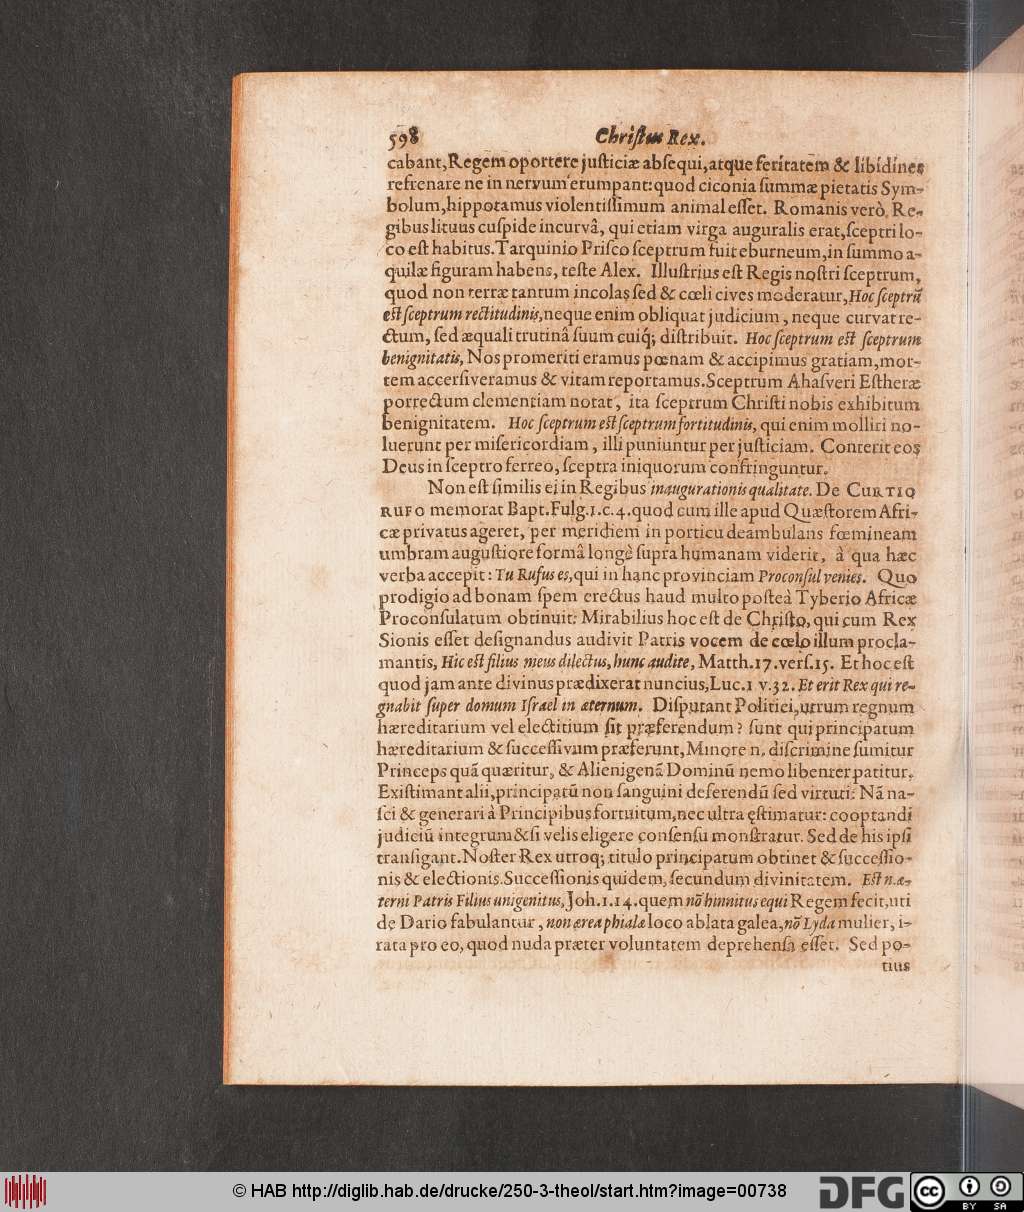 598 Christus Rex.
cabant, Regem oportere justiciæ absequi, atque feritatem & libidines
refrenare ne in nervum erumpant: quod ciconia summæ pietatis Sym-
bolum, hippotamus violentissimum animal esset. Romanis verò, Re-
gibus lituus cuspide incurvâ, qui etiam virga auguralis erat, sceptri lo-
co est habitus. Tarquinio Prisco sceptrum fuit eburneum, in summo a-
quilæ figuram habens, teste Alex. Illustrius est Regis nostri sceptrum,
quod non terræ tantum incolas sed & cœli cives moderatur, Hoc sceptrũ
est sceptrum rectitudinis, neque enim obliquat judicium, neque curvat re-
ctum, sed æquali trutinâ suum cuiq́; distribuit. Hoc sceptrum est sceptrum
benignitatis, Nos promeriti eramus pœnam & accipimus gratiam, mor-
tem accersiveramus & vitam reportamus. Sceptrum Ahasveri Estheræ
porrectum clementiam notat, ita sceptrum Christi nobis exhibitum
benignitatem. Hoc sceptrum est sceptrum fortitudinis, qui enim molliri no-
luerunt per misericordiam, illi puniuntur per justiciam. Conterit eos
Deus in sceptro ferreo, sceptra iniquorum confringuntur.
Non est similis ei in Regibus inaugurationis qualitate. De CURTIO
RUFO memorat Bapt. Fulg. 1. c. 4. quod cum ille apud Quæstorem Afri-
cæ privatus ageret, per meridiem in porticu deambulans fœmineam
umbram augustiore formâ longè supra humanam viderit, à qua hæc
verba accepit: Tu Rufus es, qui in hanc provinciam Proconsul venies. Quo
prodigio ad bonam spem erectus haud multo posteà Tyberio Africæ
Proconsulatum obtinuit: Mirabilius hoc est de Christo, qui cum Rex
Sionis esset designandus audivit Patris vocem de cœlo illum procla-
mantis, Hic est filius meus dilectus, hunc audite, Matth. 17. vers. 15. Et hoc est
quod jam ante divinus prædixerat nuncius, Luc. 1 v. 32. Et erit Rex qui re-
gnabit super domum Israel in æternum. Disputant Politici, utrum regnum
hæreditarium vel electitium sit præferendum? sunt qui principatum
hæreditarium & successivum præferunt, Minore n. discrimine sumitur
Princeps quã quæritur, & Alienigenã Dominũ nemo libenter patitur.
Existimant alii, principatũ non sanguini deferendũ sed virtuti: Nã na-
sci & generari à Principibus fortuitum, nec ultra ęstimatur: cooptandi
judiciũ integrum & si velis eligere consensu monstratur. Sed de his ipsi
transigant. Noster Rex utroq; titulo principatum obtinet & successio-
nis & electionis. Successionis quidem, secundum divinitatem. Est n. æ-
terni Patris Filius unigenitus, Joh. 1. 14. quem nõ hinnitus equi Regem fecit, uti
de Dario fabulantur, non ærea phialæ loco ablata galea, nõ Lyda mulier, i-
rata pro eo, quod nuda præter voluntatem deprehensa esset. Sed po-
tius
© HAB http://diglib.hab.de/drucke/250-3-theol/start.htm?image=00738
DFG
cc BY SA